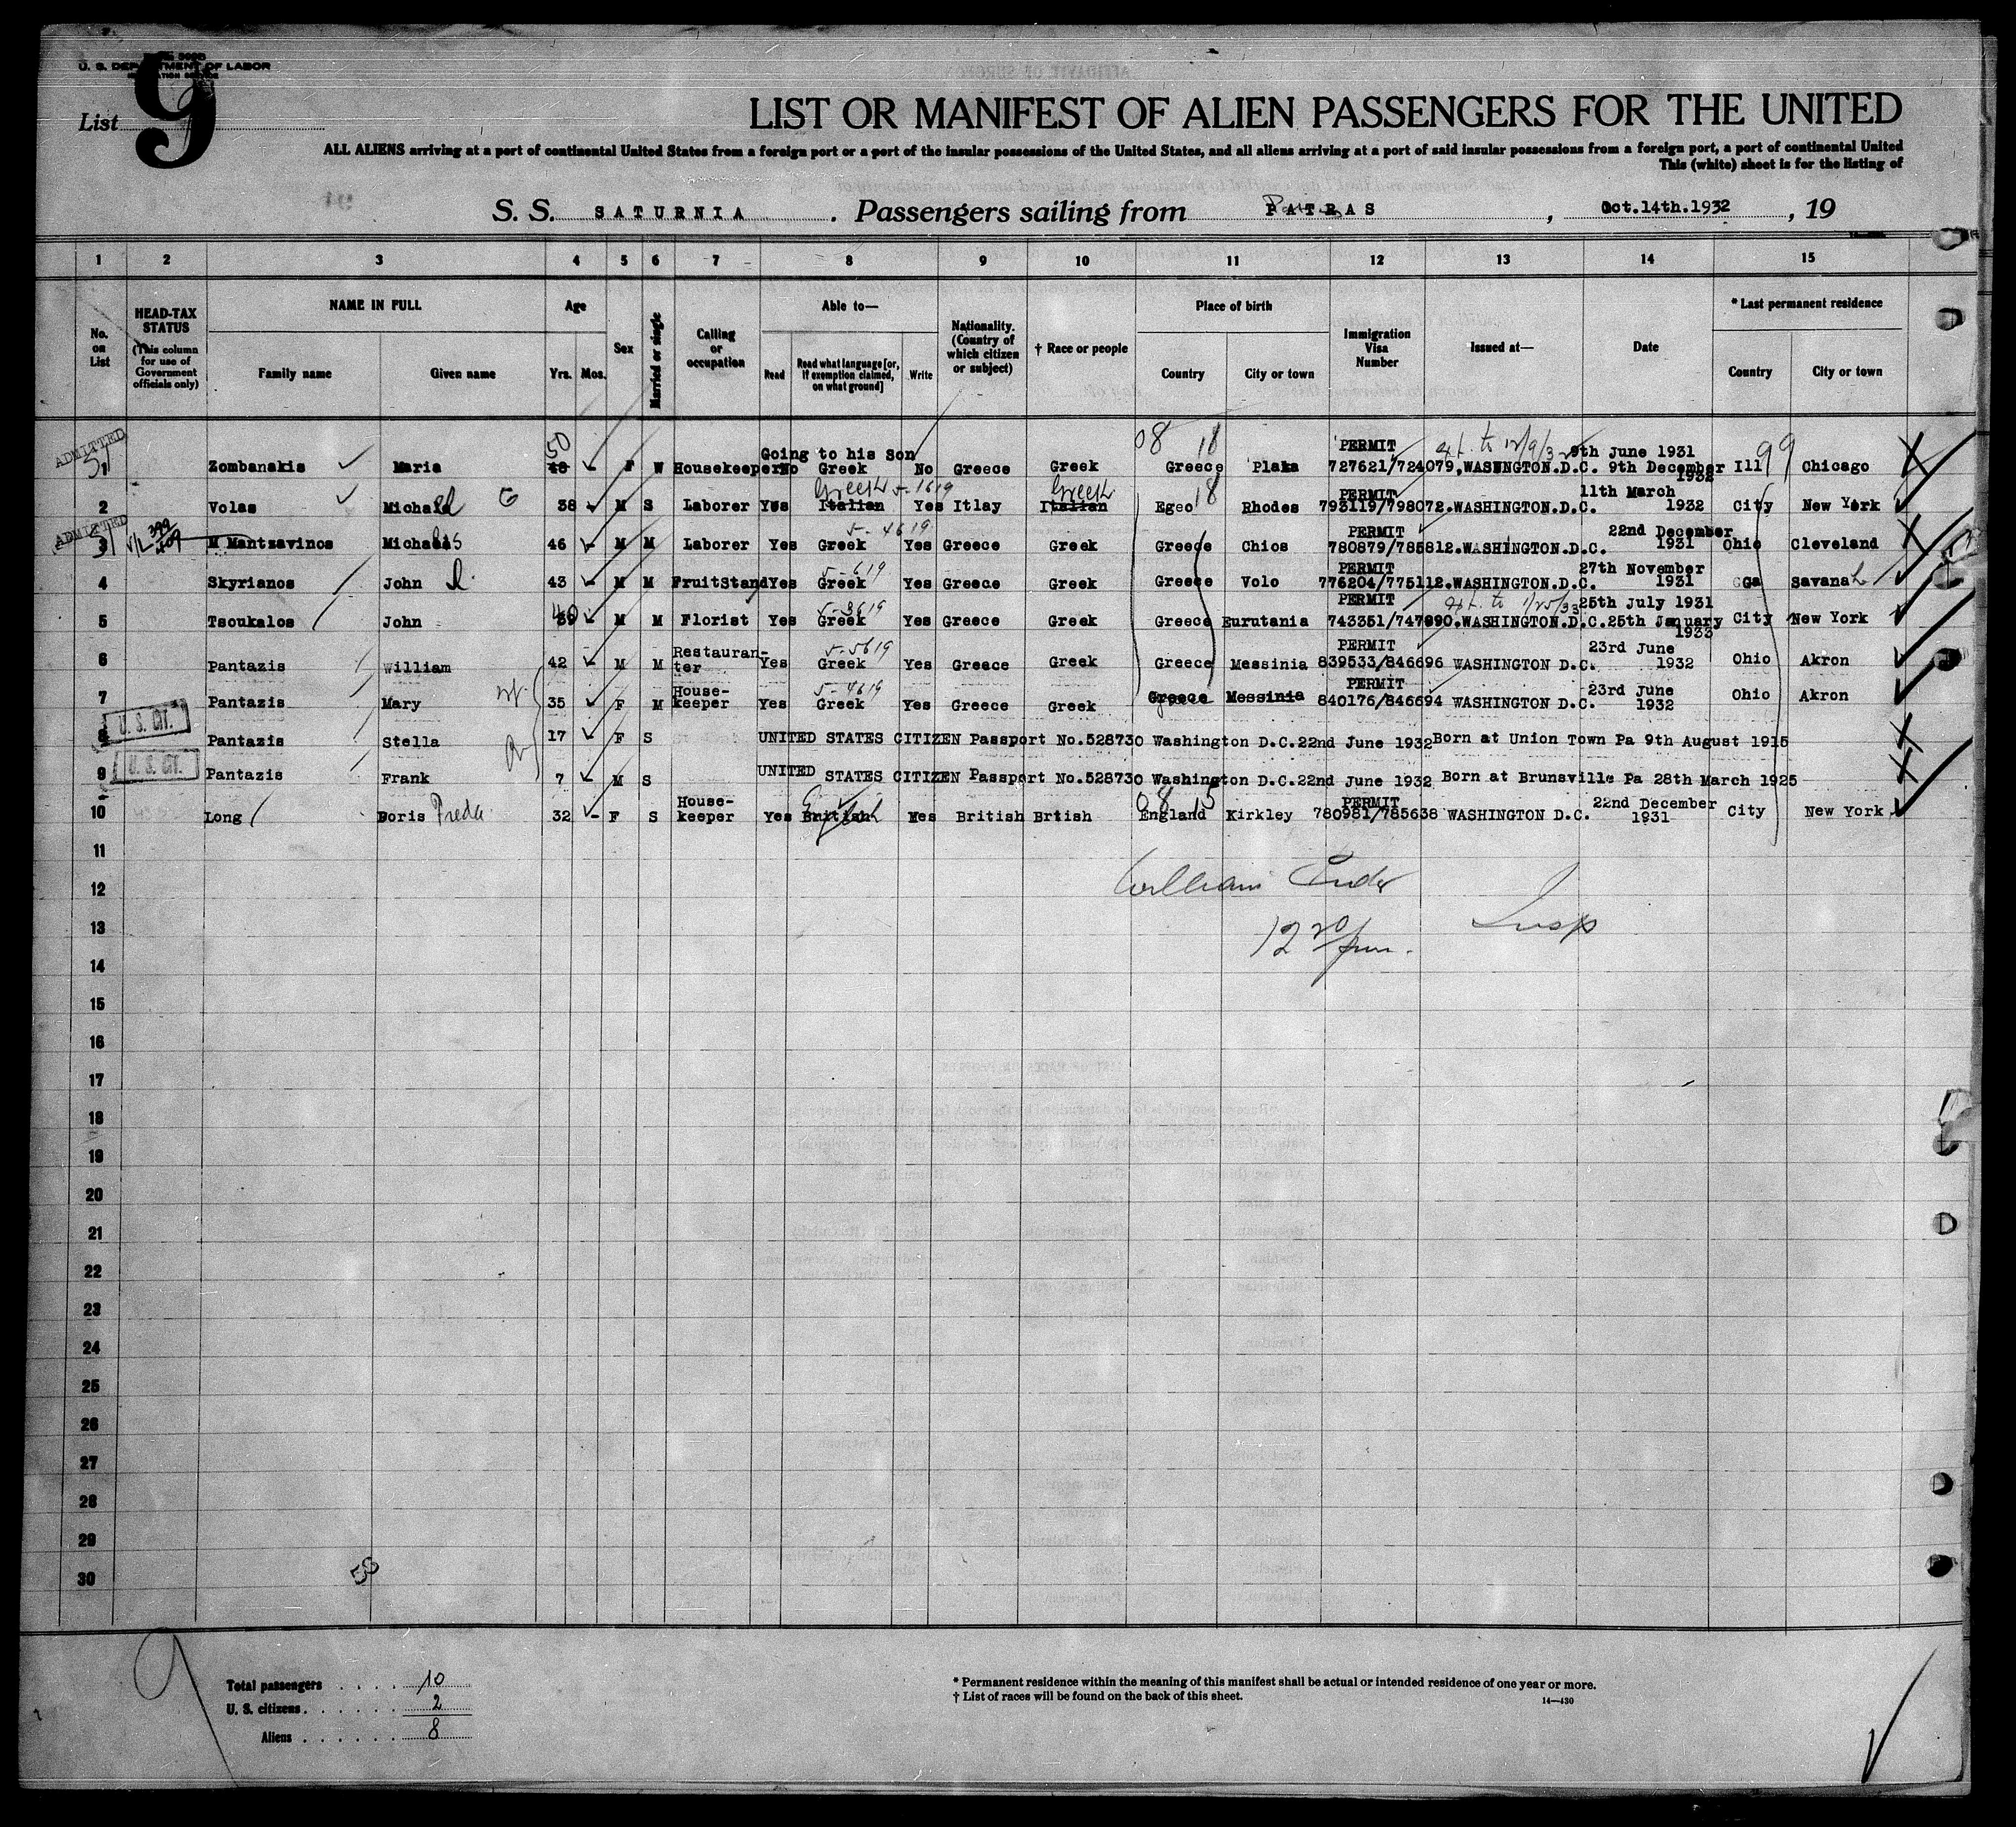 U. S. DEPARTMENT OF LABOR
List 9
LIST OR MANIFEST OF ALIEN PASSENGERS FOR THE UNITED
ALL ALIENS arriving at a port of continental United States from a foreign port or a port of the insular possessions of the United States, and all aliens arriving at a port of said insular possessions from a foreign port, a port of continental United
This (white) sheet is for the listing of
S. S. SATURNIA . Passengers sailing from PATRAS , Oct.14th.1932 , 19
1 2 3 4 5 6 7 8 9 10 11 12 13 14 15
No. on List
HEAD-TAX STATUS (This column for use of Government officials only)
NAME IN FULL
Family name Given name
Age
Yrs. Mos.
Sex
Married or single
Calling or occupation
Able to—
Read Read what language [or, if exemption claimed, on what ground] Write
Nationality. (Country of which citizen or subject)
† Race or people
Place of birth
Country City or town
Immigration Visa Number
Issued at—
Date
* Last permanent residence
Country City or town
ADMITTED 50 Going to his Son 08 18 PERMIT ext. to 12/9/32 9th June 1931 99
1 Zombanakis Maria 48 F W Housekeeper No Greek No Greece Greek Greece Plaka 727621/724079,WASHNGTON.D.C. 9th December 1932 Ill Chicago
Greek 5-1619 Greek 18 PERMIT 11th March
2 Volas Michael G 38 M S Laborer Yes Italian Yes Itlay Italian Egeo Rhodes 793119/798072.WASHINGTON.D.C. 1932 City New York
ADMITTED 5-4619 PERMIT 22nd December
3 M Mantzavinos Michaels 46 M M Laborer Yes Greek Yes Greece Greek Greece Chios 780879/785812.WASHINGTON.D.C. 1931 Ohio Cleveland
5-619 PERMIT 27th November
4 Skyrianos John 43 M M FruitStand Yes Greek Yes Greece Greek Greece Volo 776204/775112.WASHINGTON.D.C. 1931 Ga Savanah
40 5-3619 PERMIT ext. to 1/25/33 25th July 1931
5 Tsoukalos John 39 M M Florist Yes Greek Yes Greece Greek Greece Eurutania 743351/747990.WASHINGTON.D.C.25th January 1933 City New York
5-5619 PERMIT 23rd June
6 Pantazis William 42 M M Restauran-ter Yes Greek Yes Greece Greek Greece Messinia 839533/846696 WASHINGTON D.C. 1932 Ohio Akron
5-4619 PERMIT 23rd June
7 Pantazis Mary 35 F M House-keeper Yes Greek Yes Greece Greek Greece Messinia 840176/846694 WASHINGTON D.C. 1932 Ohio Akron
U. S. CIT.
8 Pantazis Stella 17 F S UNITED STATES CITIZEN Passport No.528730 Washington D.C.22nd June 1932 Born at Union Town Pa 9th August 1915
U. S. CIT.
9 Pantazis Frank 7 M S UNITED STATES CITIZEN Passport No.528730 Washington D.C.22nd June 1932 Born at Brunsville Pa 28th March 1925
08 5 PERMIT 22nd December
10 Long Doris Freda 32 F S House-keeper Yes British English Yes British Brtish England Kirkley 780981/785638 WASHINGTON D.C. 1931 City New York
11
12 William
13 12 20 pm. Insp
14
15
16
17
18
19
20
21
22
23
24
25
26
27
28
29
30
Total passengers . . . . 10
U. S. citizens . . . . . . 2
Aliens . . . . . . 8
* Permanent residence within the meaning of this manifest shall be actual or intended residence of one year or more.
† List of races will be found on the back of this sheet.
14—430